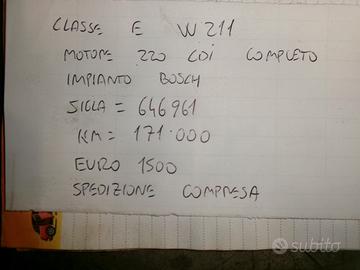 CLASSE E W211
MOTORE 220 CDI COMPLETO
IMPIANTO BOSCH
SIGLA = 646961
KM = 171.000
EURO 1500
SPEDIZIONE COMPRESA
subito